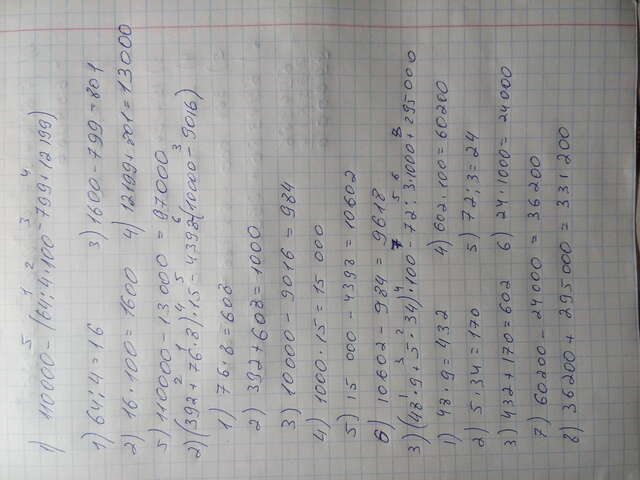 1) 110000 - (64:4·100-799+12199)
1) 64:4=16 3) 1600-799=801
2) 16·100=1600 4) 12199+801=13000
5) 110000-13000=97000
2) (392+76·8)·15=4398-(10000-9016)
1) 76·8=608
2) 392+608=1000
3) 10000-9016=984
4) 1000·15=15 000
5) 15 000-4398=10602
6) 10602-984=9618
3) (48·9+5·34)·100-72:3·1000+295000
1) 48·9=432 4) 602·100=60200
2) 5·34=170 5) 72:3=24
3) 432+170=602 6) 24·1000=24000
7) 60200-24000=36200
8) 36200+295000=331200